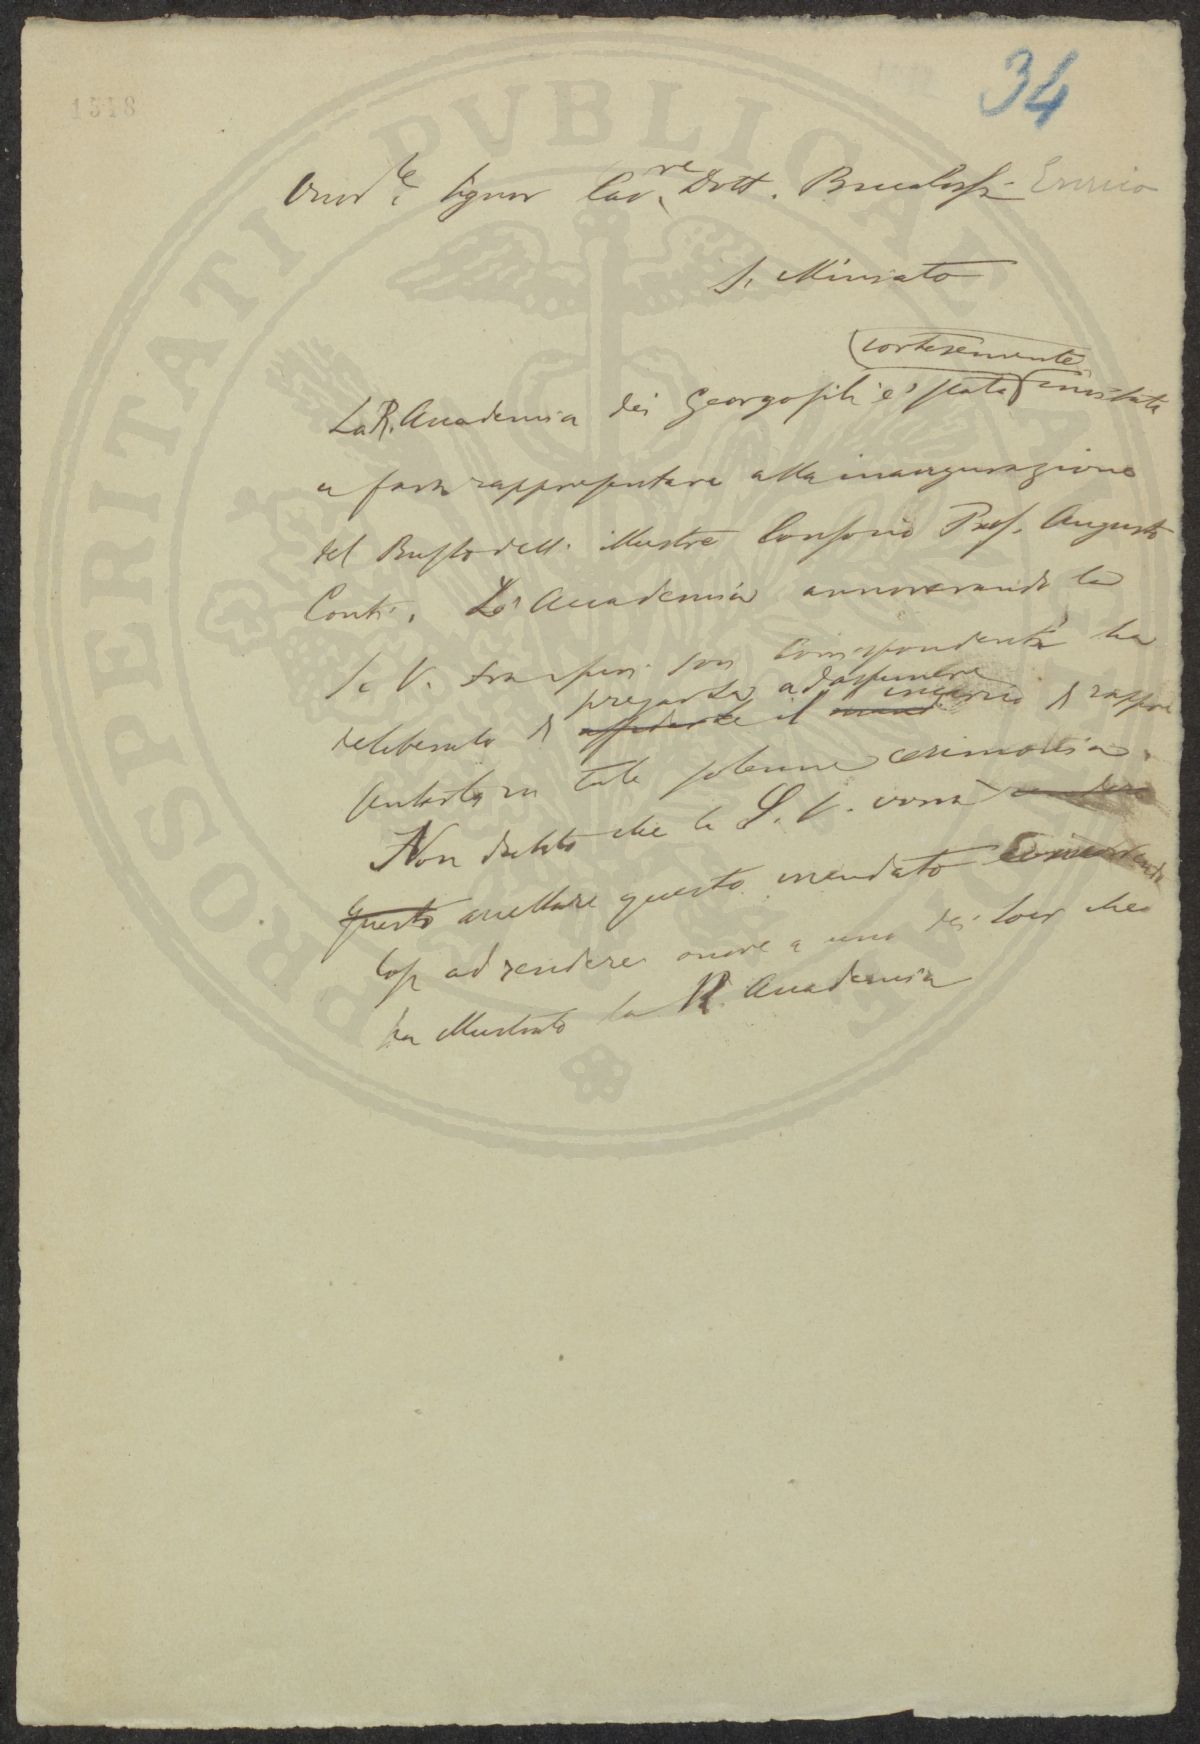 1548
34
Onor.le Signor Cav.re Dott. Brucalassi Enrico
S. Miniato
cortesemente
La R. Accademia dei Georgofili è stata invitata
a farsi rappresentare alla inaugurazione
del Busto dell' illustre Consocio Prof. Augusto
Conti. L'Accademia annoverando la
S. V. fra i suoi soci Corrispondenti ha
pregarla ad assumere
deliberato di affidarle il incarico di rappre
sentarla in tale solenne cerimonia.
Non dubito che la S. V. vorrà
questo accettare questo mandato
così ad rendere onore a uno dei soci che
ha illustrato la R. Accademia
PROSPERITATI PVBLICAE